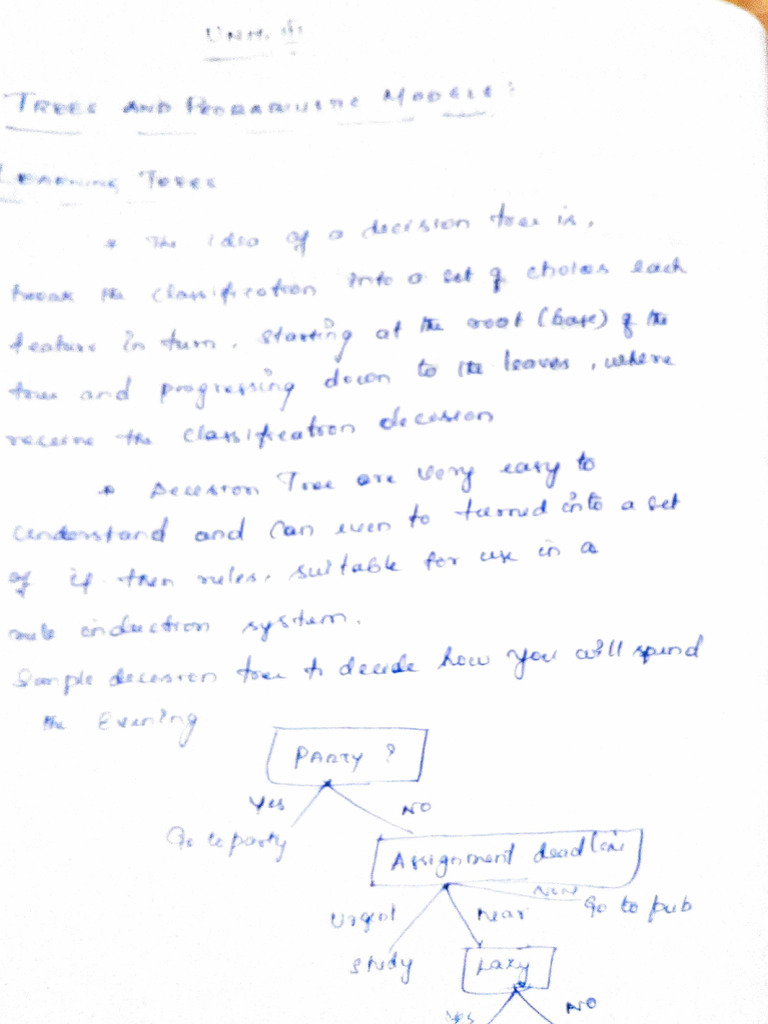 TREES AND PROBABILISTIC MODELS:
LEARNING TREES
* The idea of a decision tree is,
break the classification into a set of choices each
feature in turn, starting at the root (base) of the
tree and progressing down to the leaves, where
receive the classification decesion
* Decesion Tree are very easy to
understand and can even to turned into a set
of if then rules, suitable for use in a
rule induction system.
Sample decesion tree to decide how you will spend
the Evening
PARTY ?
Yes NO
Go to party
Assignment deadline
Urgent Near None Go to pub
Study Lazy
Yes NO